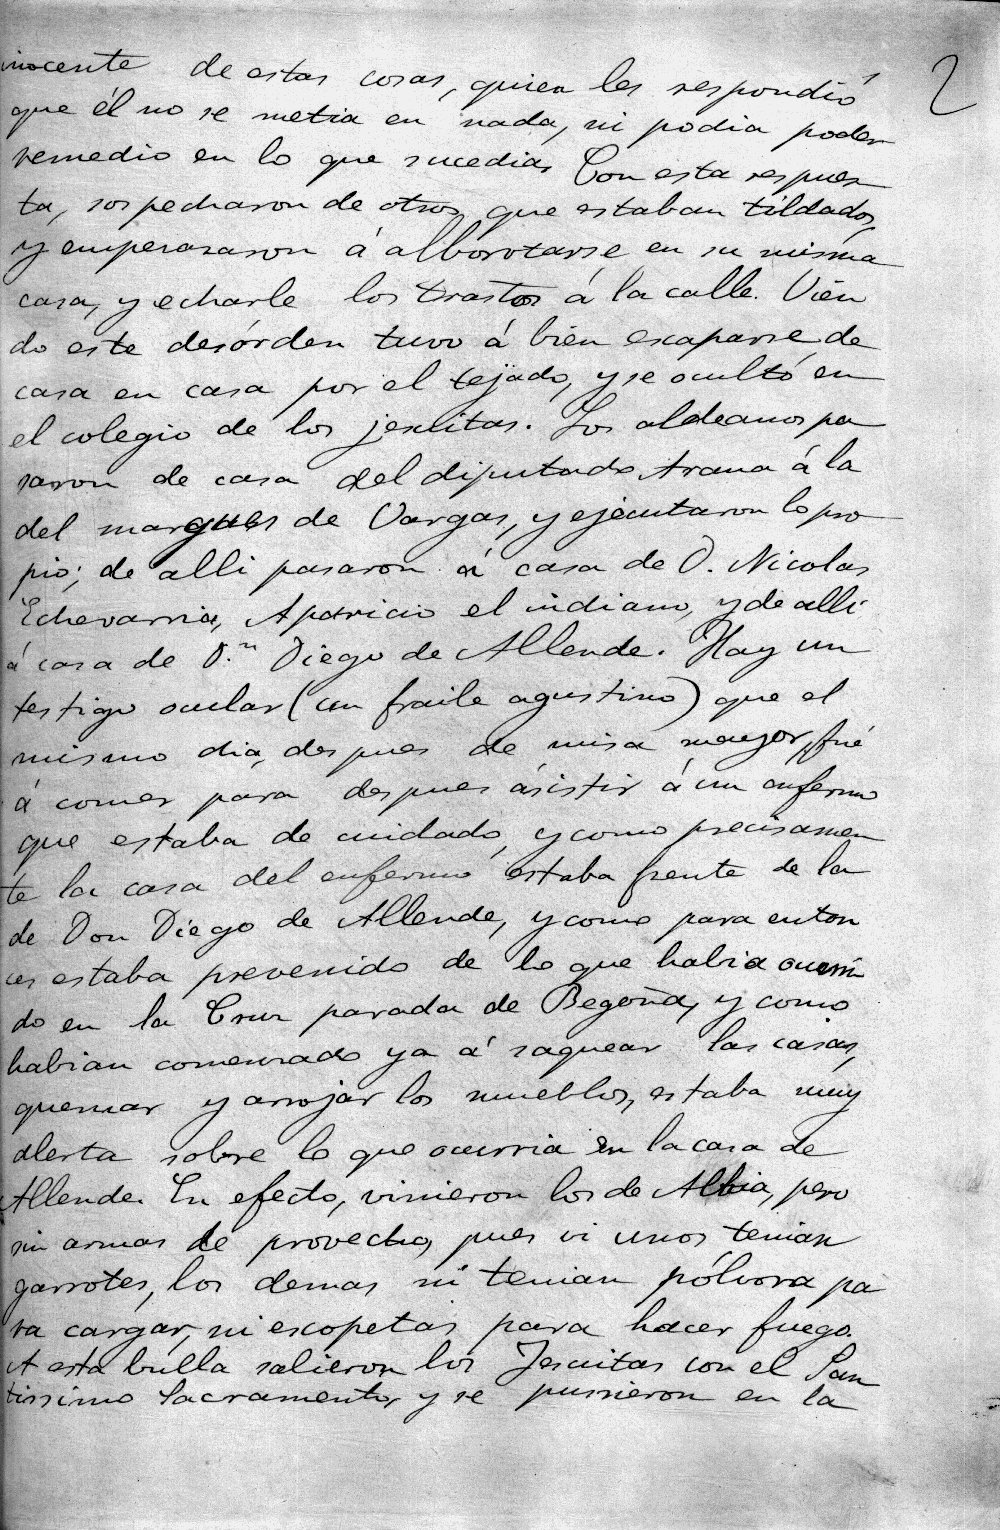 2
inocente de estas cosas, quien les respondió
que él no se metia en nada, ni podia poder
remedio en lo que sucedia. Con esta respues
ta, sospecharon de otros que estaban tildados,
y emperasaron á alborotarse en su misma
casa, y echarle los trastos á la calle. Vien
do este desórden tuvo á bien escaparse de
casa en casa por el tejado, y se ocultó en
el colegio de los jesuitas. Los aldeanos pa
saron de casa del diputado Arana á la
del marques de Vargas, y ejecutaron lo pro
pio; de alli pasaron á casa de D. Nicolas
Echevarria, Aparicio el indiano, y de alli
á casa de D.n Diego de Allende. Hay un
testigo ocular (un fraile agustino) que el
mismo dia, despues de misa mayor, fué
á comer para despues ásistir á un enfermo
que estaba de cuidado, y como precisamen
te la casa del enfermo estaba frente de la
de Don Diego de Allende, y como para enton
ces estaba prevenido de lo que habia ocurri
do en la Cruz parada de Begoña, y como
habian comenzado ya á saquear las casas,
quemar y arrojar los muebles, estaba muy
alerta sobre lo que ocurria en la casa de
Allende. En efecto, vinieron los de Albia, pero
sin armas de provecho, pues si unos tenian
garrotes, los demas ni tenian pólvora pa
ra cargar, ni escopetas para hacer fuego.
A esta bulla salieron los Jesuitas con el San
tissimo Sacramento, y se pusieron en la